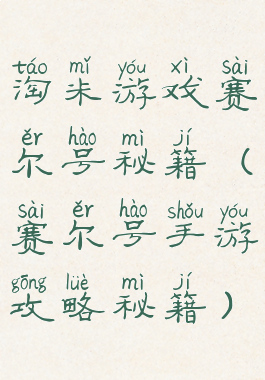 táo mǐ yóu xì sài
淘米游戏赛
ěr hào mì jí
尔号秘籍（
sài ěr hào shǒu yóu
赛尔号手游
gōng lüè mì jí
攻略秘籍）